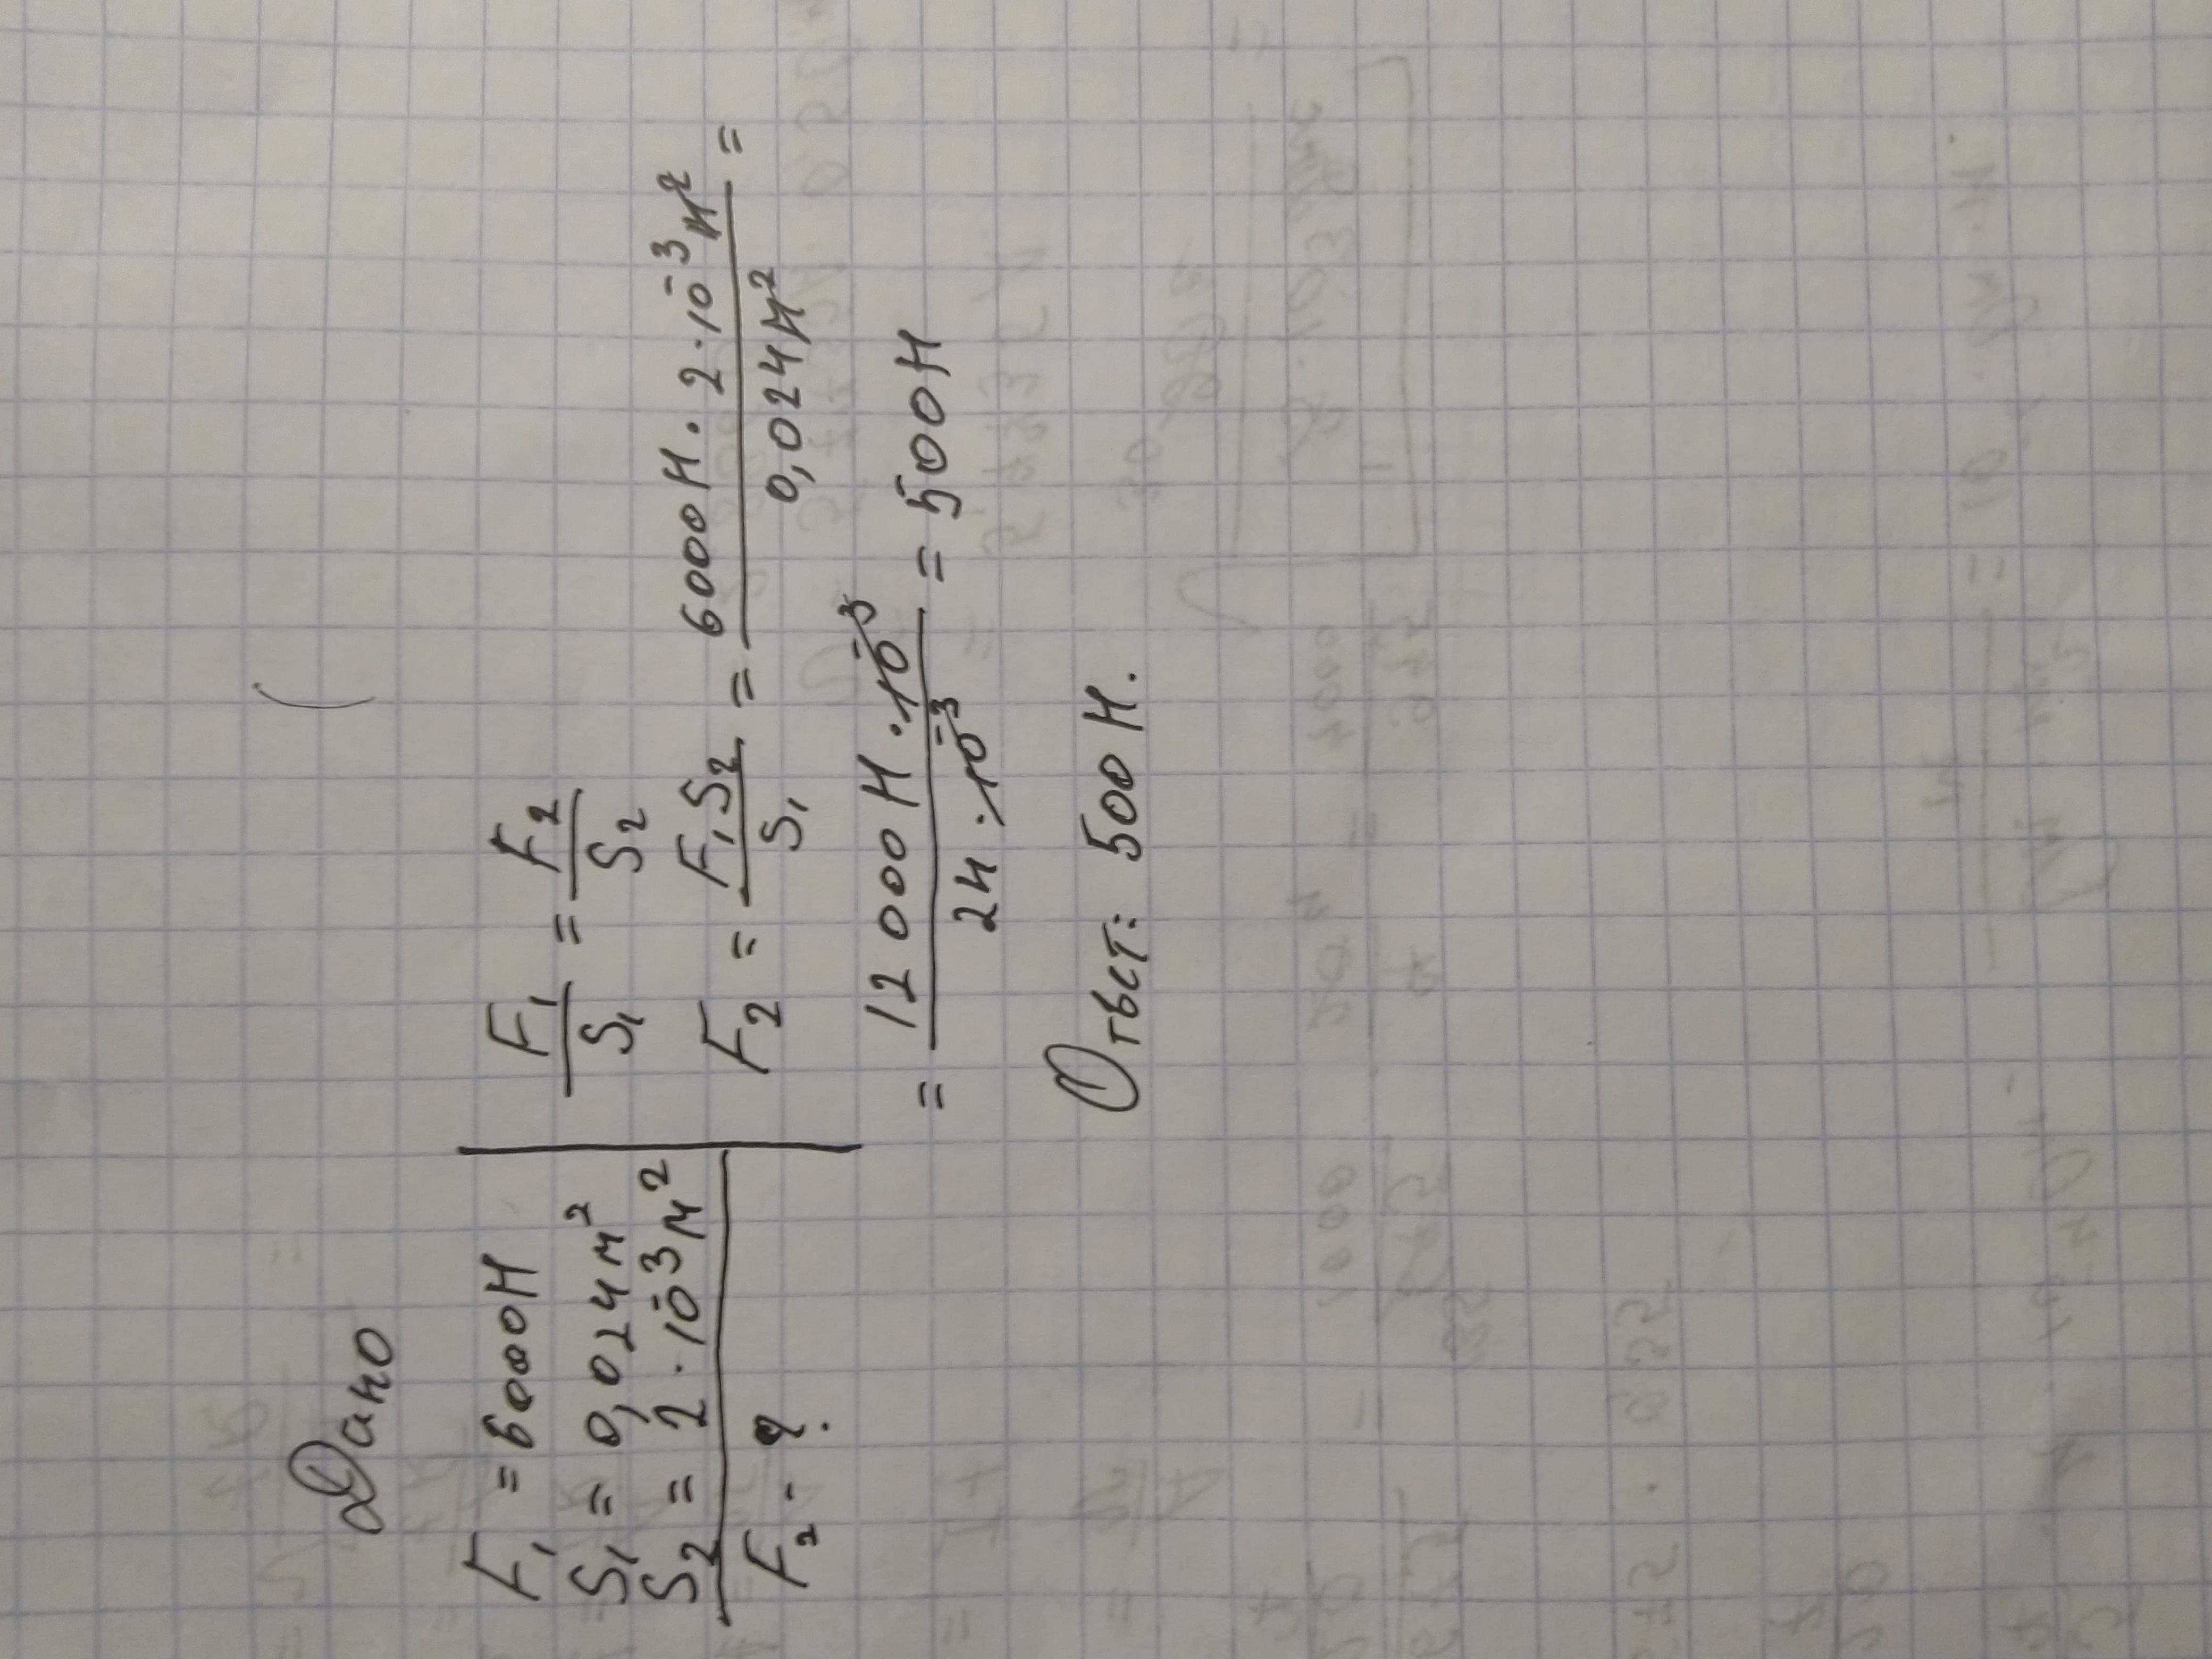 Дано
F₁ = 6000Н
S₁ = 0,024м²
S₂ = 2 · 10⁻³м²
F₂ - ?
F₁/S₁ = F₂/S₂
F₂ = F₁S₂/S₁ = 6000Н · 2 · 10⁻³м²/0,024м² =
= 12 000Н · 10⁻³/24 · 10⁻³ = 500Н
Ответ: 500Н.